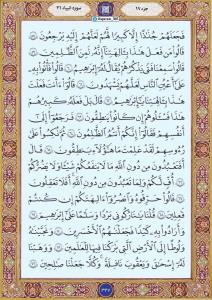 جزء ۱۷
سوره انبیاء ۲۱
فَجَعَلَهُمْ جُذَٰذًا إِلَّا كَبِيرًا لَّهُمْ لَعَلَّهُمْ إِلَيْهِ يَرْجِعُونَ
قَالُوا مَن فَعَلَ هَٰذَا بِآلِهَتِنَا إِنَّهُ لَمِنَ الظَّٰلِمِينَ
قَالُوا سَمِعْنَا فَتًى يَذْكُرُهُمْ يُقَالُ لَهُ إِبْرَٰهِيمُ قَالُوا فَأْتُوا بِهِ
عَلَىٰ أَعْيُنِ النَّاسِ لَعَلَّهُمْ يَشْهَدُونَ قَالُوا ءَأَنتَ فَعَلْتَ
هَٰذَا بِآلِهَتِنَا يَٰإِبْرَٰهِيمُ قَالَ بَلْ فَعَلَهُ كَبِيرُهُمْ
هَٰذَا فَسْـَٔلُوهُمْ إِن كَانُوا يَنطِقُونَ فَرَجَعُوا إِلَىٰ
أَنفُسِهِمْ فَقَالُوا إِنَّكُمْ أَنتُمُ الظَّٰلِمُونَ ثُمَّ نُكِسُوا عَلَىٰ
رُءُوسِهِمْ لَقَدْ عَلِمْتَ مَا هَٰؤُلَاءِ يَنطِقُونَ قَالَ
أَفَتَعْبُدُونَ مِن دُونِ اللَّهِ مَا لَا يَنفَعُكُمْ شَيْـًٔا وَلَا يَضُرُّكُمْ
أُفٍّ لَّكُمْ وَلِمَا تَعْبُدُونَ مِن دُونِ اللَّهِ أَفَلَا تَعْقِلُونَ
قَالُوا حَرِّقُوهُ وَانصُرُوا ءَالِهَتَكُمْ إِن كُنتُمْ
فَٰعِلِينَ قُلْنَا يَٰنَارُ كُونِي بَرْدًا وَسَلَٰمًا عَلَىٰ إِبْرَٰهِيمَ
وَأَرَادُوا بِهِ كَيْدًا فَجَعَلْنَٰهُمُ الْأَخْسَرِينَ وَنَجَّيْنَٰهُ
وَلُوطًا إِلَى الْأَرْضِ الَّتِي بَٰرَكْنَا فِيهَا لِلْعَٰلَمِينَ وَوَهَبْنَا
لَهُ إِسْحَٰقَ وَيَعْقُوبَ نَافِلَةً وَكُلًّا جَعَلْنَا صَٰلِحِينَ
۳۲۷